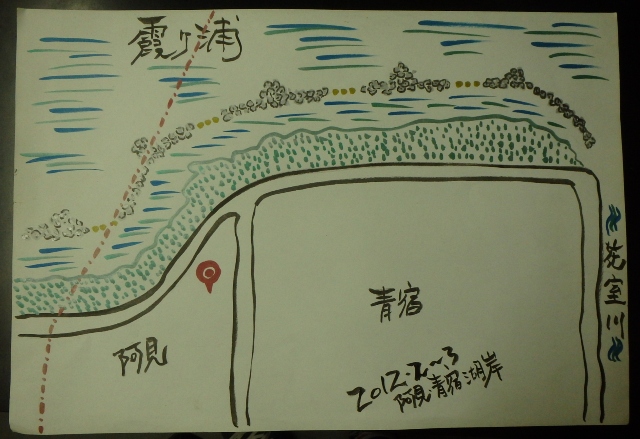 霞ヶ浦
花室川
青宿
阿見
2012.2~3
阿見・青宿湖岸